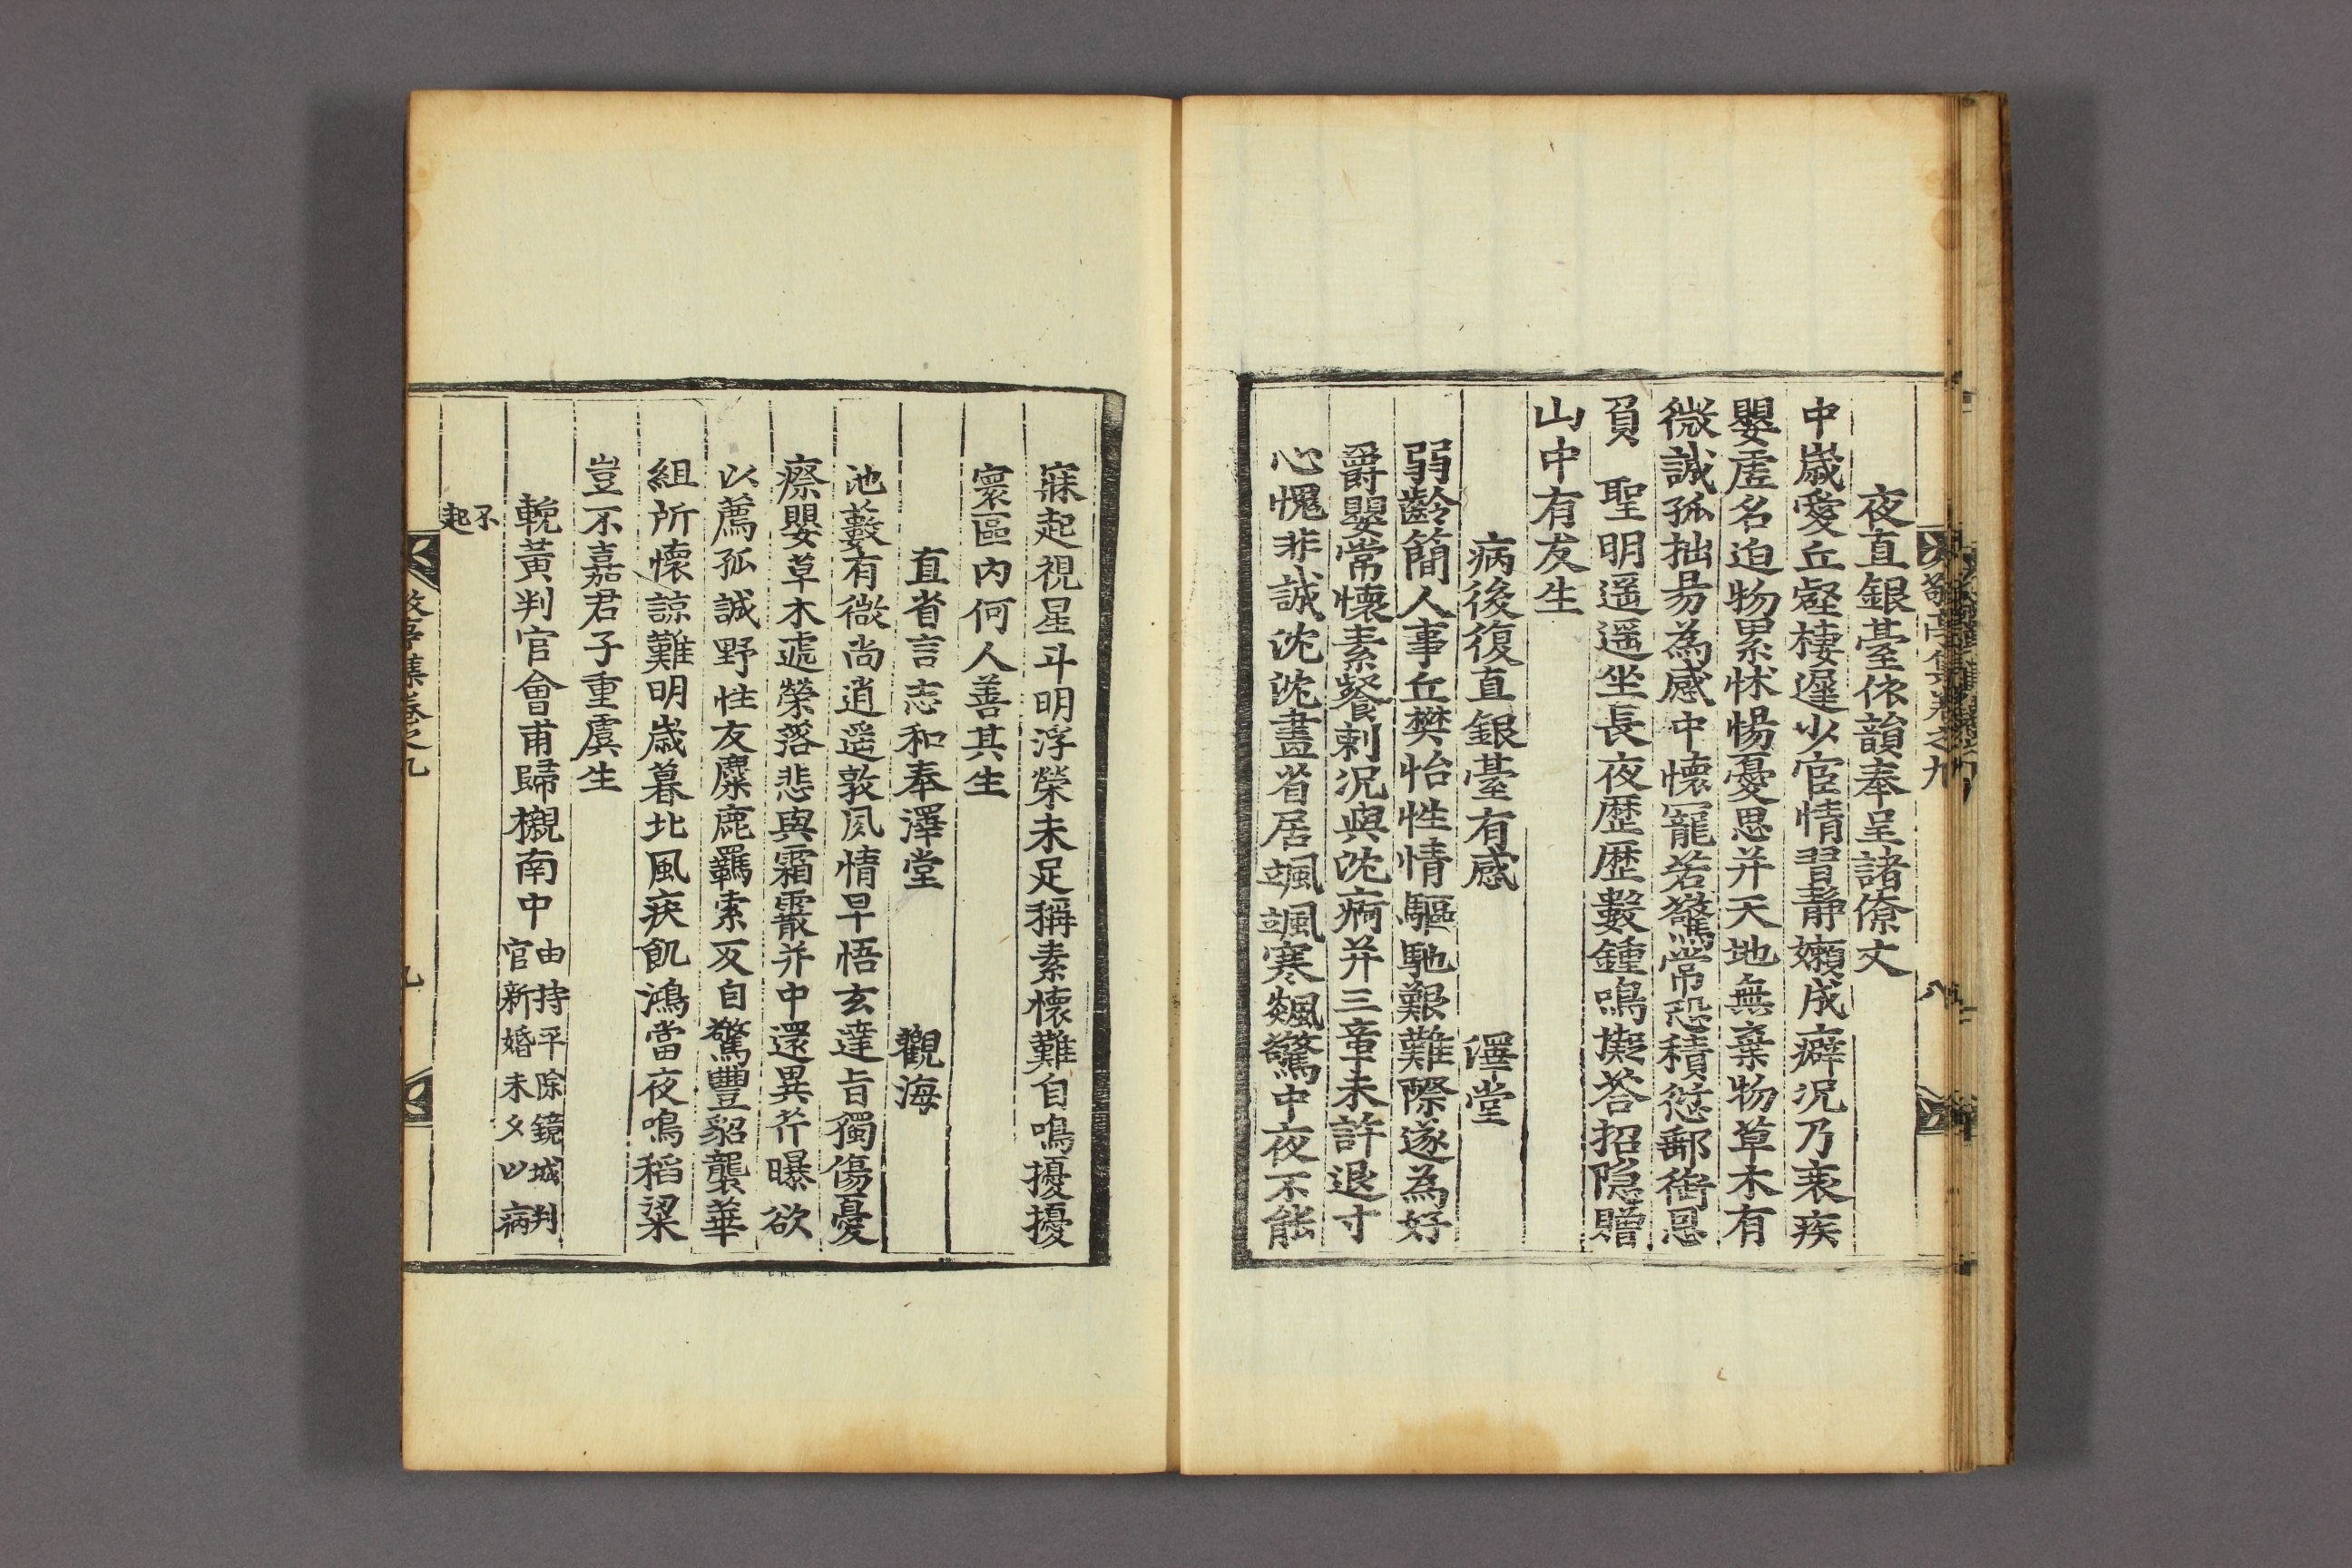 夜直銀臺依韻奉呈諸僚丈
中歲愛丘壑棲遲少宦情習靜嬾成癖況乃衰疾
嬰虛名迫物累怵惕憂思并天地無棄物草木有
微誠孤拙易為感中懷寵若驚常恐積愆郵銜恩
負 聖明遥遥坐長夜歷歷數鍾鳴擬荅招隱贈
山中有友生
病後復直銀臺有感 澤堂
弱齡簡人事丘樊怡性情驅馳艱難際遂為好
爵嬰常懷素餐刺況與沈痾并三章未許退寸
心愧非誠沈沈畫省居颯颯寒飈驚中夜不能
寐起視星斗明浮榮未足稱素懷難自鳴擾擾
寰區內何人善其生
直省言志和奉澤堂 觀海
池藪有微尚逍遥敦夙情早悟玄達旨獨傷憂
瘵嬰草木遞榮落悲與霜霰并中還異芹曝欲
以薦孤誠野性友麋鹿羈索反自驚豐貂襲華
組所懷諒難明歲暮北風疾飢鴻當夜鳴稻粱
豈不嘉君子重虞生
輓黃判官會甫歸櫬南中 由持平除鏡城判
官新婚未夕以病
不
起
敬亭集卷之九
九